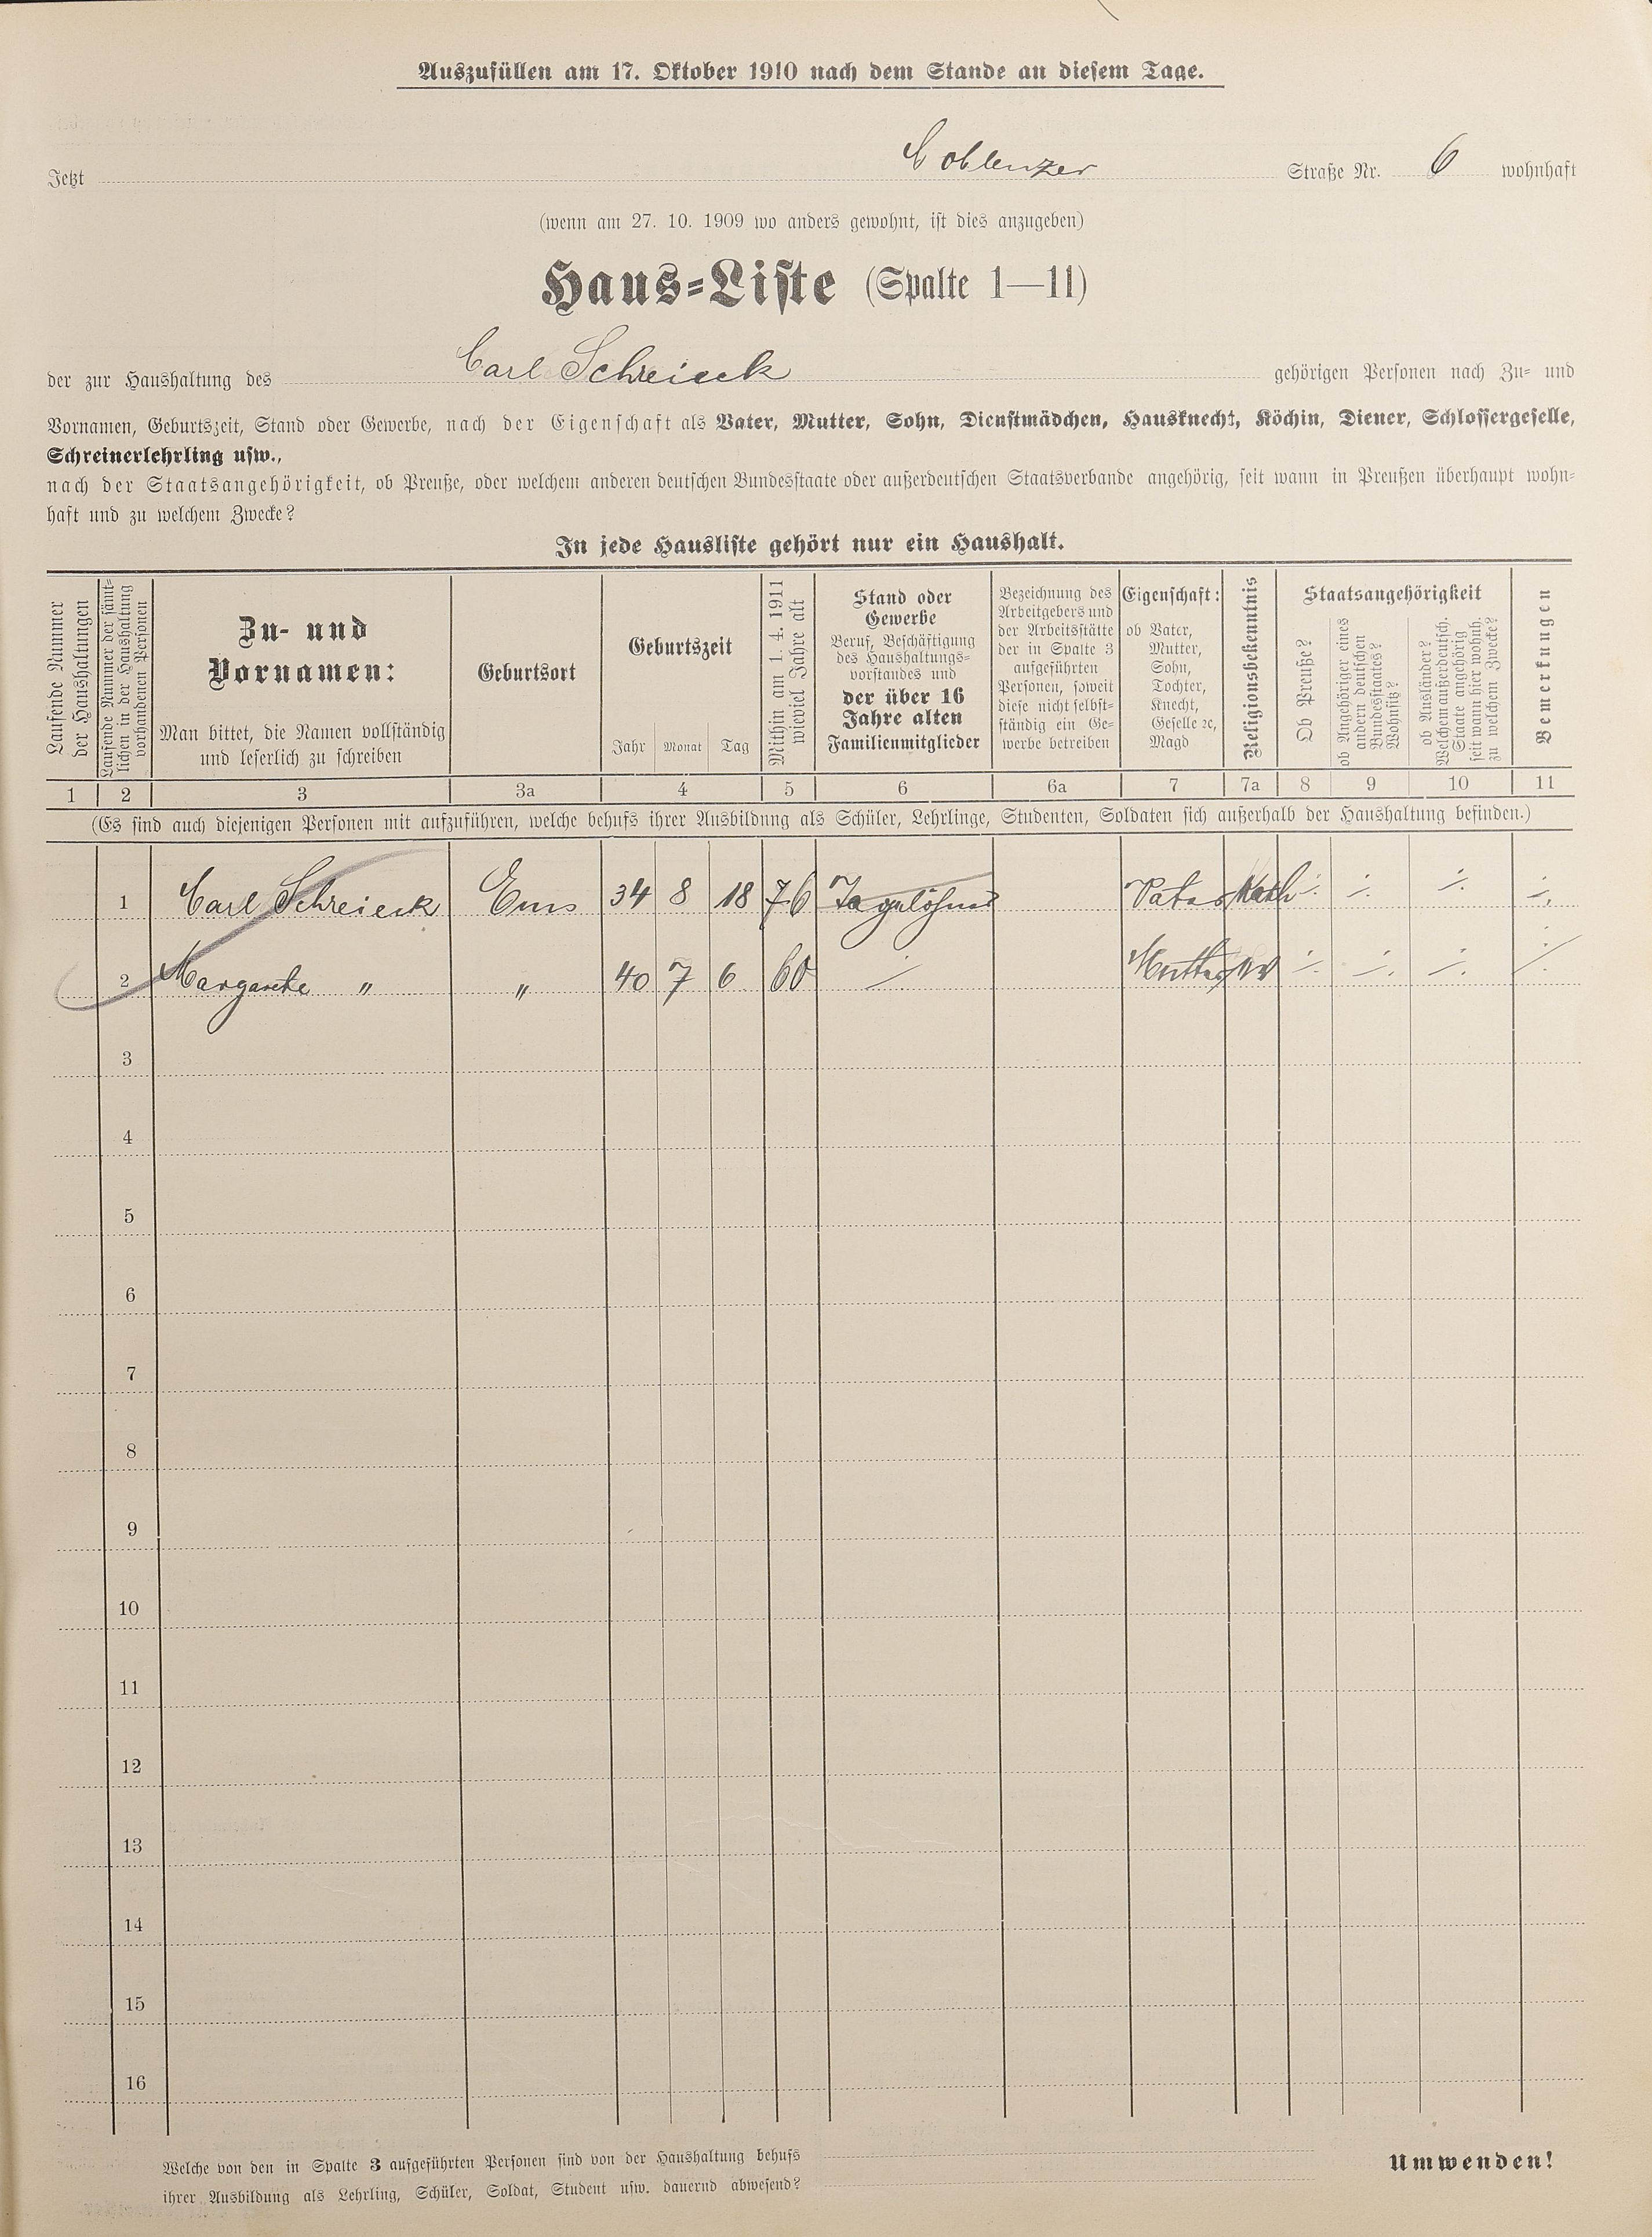 Auszufüllen am 17. Oktober 1910 nach dem Stande an diesem Tage.
Jetzt Coblenzer Straße Nr. 6 wohnhaft
(wenn am 27. 10. 1909 wo anders gewohnt, ist dies anzugeben)
Haus-Liste (Spalte 1—11)
der zur Haushaltung des Carl Schreieck gehörigen Personen nach Zu- und
Vornamen, Geburtszeit, Stand oder Gewerbe, nach der Eigenschaft als Vater, Mutter, Sohn, Dienstmädchen, Hausknecht, Köchin, Diener, Schlossergeselle,
Schreinerlehrling usw.,
nach der Staatsangehörigkeit, ob Preuße, oder welchem anderen deutschen Bundesstaate oder außerdeutschen Staatsverbande angehörig, seit wann in Preußen überhaupt wohn-
haft und zu welchem Zwecke?
In jede Hausliste gehört nur ein Haushalt.
Laufende Nummer
der Haushaltungen
Laufende Nummer der sämt-
lichen in der Haushaltung
vorhandenen Personen
Zu- und
Vornamen:
Man bittet, die Namen vollständig
und leserlich zu schreiben
Geburtsort
Geburtszeit
Jahr Monat Tag
Mithin am 1. 4. 1911
wieviel Jahre alt
Stand oder
Gewerbe
Beruf, Beschäftigung
des Haushaltungs-
vorstandes und
der über 16
Jahre alten
Familienmitglieder
Bezeichnung des
Arbeitgebers und
der Arbeitsstätte
der in Spalte 3
aufgeführten
Personen, soweit
diese nicht selbst-
ständig ein Ge-
werbe betreiben
Eigenschaft:
ob Vater,
Mutter,
Sohn,
Tochter,
Knecht,
Geselle ꝛc,
Magd
Religionsbekenntnis
Staatsangehörigkeit
Ob Preuße?
ob Angehöriger eines
andern deutschen
Bundesstaates?
Wohnsitz?
ob Ausländer?
Welchem außerdeutsch.
Staate angehörig
seit wann hier wohnh.
zu welchem Zwecke?
Bemerkungen
1 2 3 3a 4 5 6 6a 7 7a 8 9 10 11
(Es sind auch diejenigen Personen mit aufzuführen, welche behufs ihrer Ausbildung als Schüler, Lehrlinge, Studenten, Soldaten sich außerhalb der Haushaltung befinden.)
1 Carl Schreieck Ems 34 8 18 76 Tagelöhner Vater Kath ⁒ ⁒ ⁒ ⁒
2 Margarethe " " 40 7 6 60 ⁒ Mutter ⁒ ⁒ ⁒ ⁒
3
4
5
6
7
8
9
10
11
12
13
14
15
16
Welche von den in Spalte 3 aufgeführten Personen sind von der Haushaltung behufs
ihrer Ausbildung als Lehrling, Schüler, Soldat, Student usw. dauernd abwesend?
Umwenden!